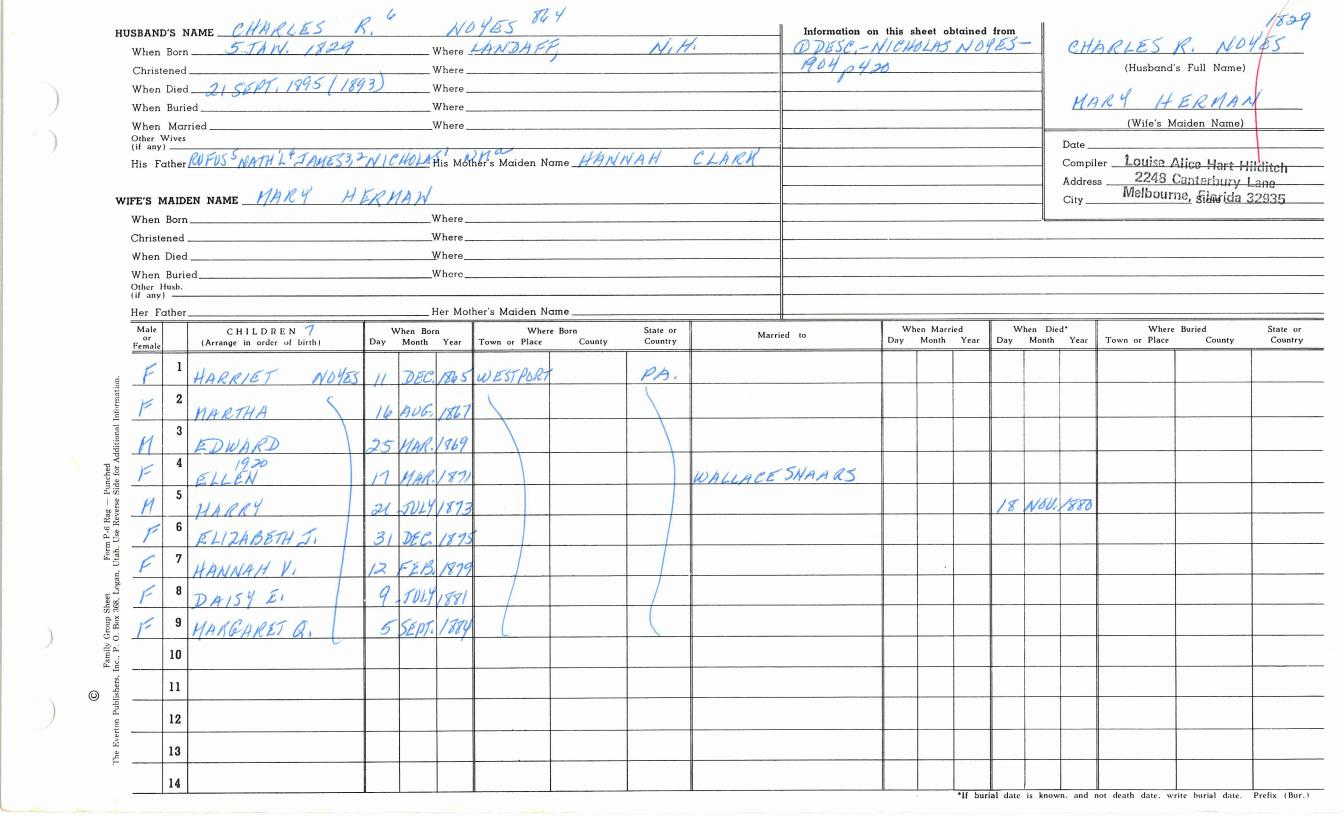 1829
HUSBAND'S NAME CHARLES R.6 NOYES 864
When Born 5 JAN. 1829 Where LANDAFF, N.H.
Christened Where
When Died 21 SEPT. 1895 (1893) Where
When Buried Where
When Married Where
Other Wives
(if any)
His Father RUFUS5 NATH'L4 JAMES3,2 NICHOLAS1 His Mother's Maiden Name HANNAH CLARK
WIFE'S MAIDEN NAME MARY HERMAN
When Born Where
Christened Where
When Died Where
When Buried Where
Other Husb.
(if any)
Her Father Her Mother's Maiden Name
Information on this sheet obtained from
① DESC,-NICHOLAS NOYES-
1904 p420
CHARLES R. NOYES
(Husband's Full Name)
MARY HERMAN
(Wife's Maiden Name)
Date
Compiler Louise Alice Hart Hilditch
Address 2248 Canterbury Lane
City State Melbourne, Florida 32935
Male or Female CHILDREN 7 (Arrange in order of birth) When Born Day Month Year Where Born Town or Place County State or Country Married to When Married Day Month Year When Died* Day Month Year Where Buried Town or Place County State or Country
F 1 HARRIET NOYES 11 DEC. 1865 WESTPORT PA.
F 2 MARTHA 16 AUG. 1867
M 3 EDWARD 25 MAR. 1869
1920
F 4 ELLEN 17 MAR. 1871 WALLACE SHAARS
M 5 HARRY 21 JULY 1873 18 NOV. 1880
F 6 ELIZABETH J. 31 DEC. 1875
F 7 HANNAH V. 12 FEB. 1879
F 8 DAISY E. 9 JULY 1881
F 9 MARGARET Q. 5 SEPT. 1884
10
11
12
13
14
*If burial date is known, and not death date, write burial date. Prefix (Bur.)
Family Group Sheet Form P-6 Rag — Punched
© The Everton Publishers, Inc., P. O. Box 368, Logan, Utah. Use Reverse Side for Additional Information.